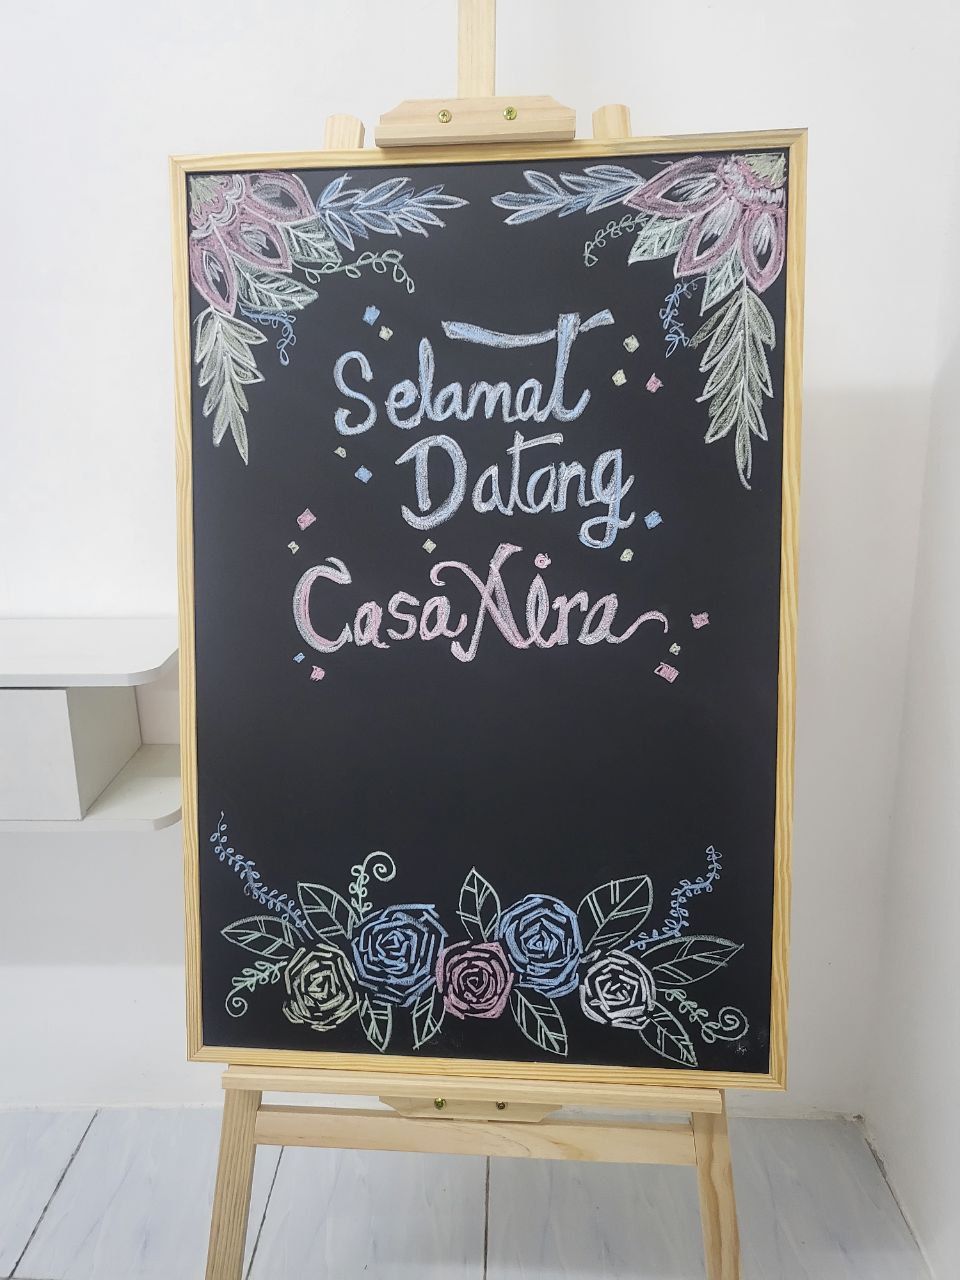 Selamat
Datang
Casa Xira